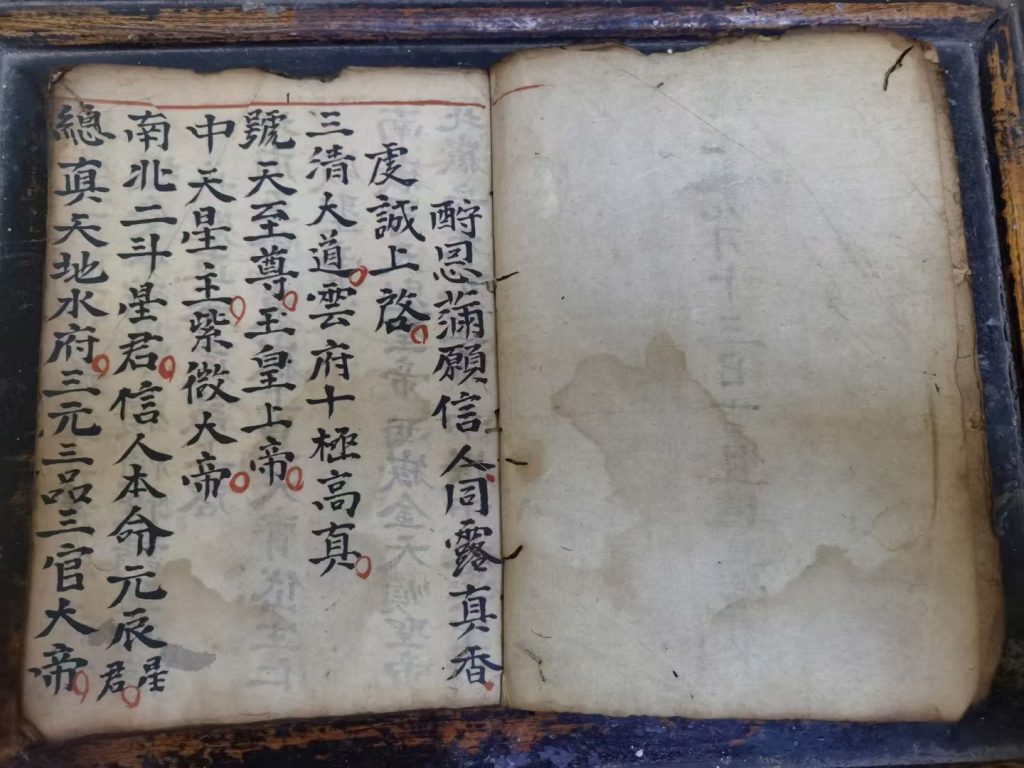 酧恩滿願信人同露真香
虔誠上啓
三清大道雲府十極高真
號天至尊玉皇上帝
中天星主紫微大帝
南北二斗星君信人本命元辰星君
總真天地水府三元三品三官大帝